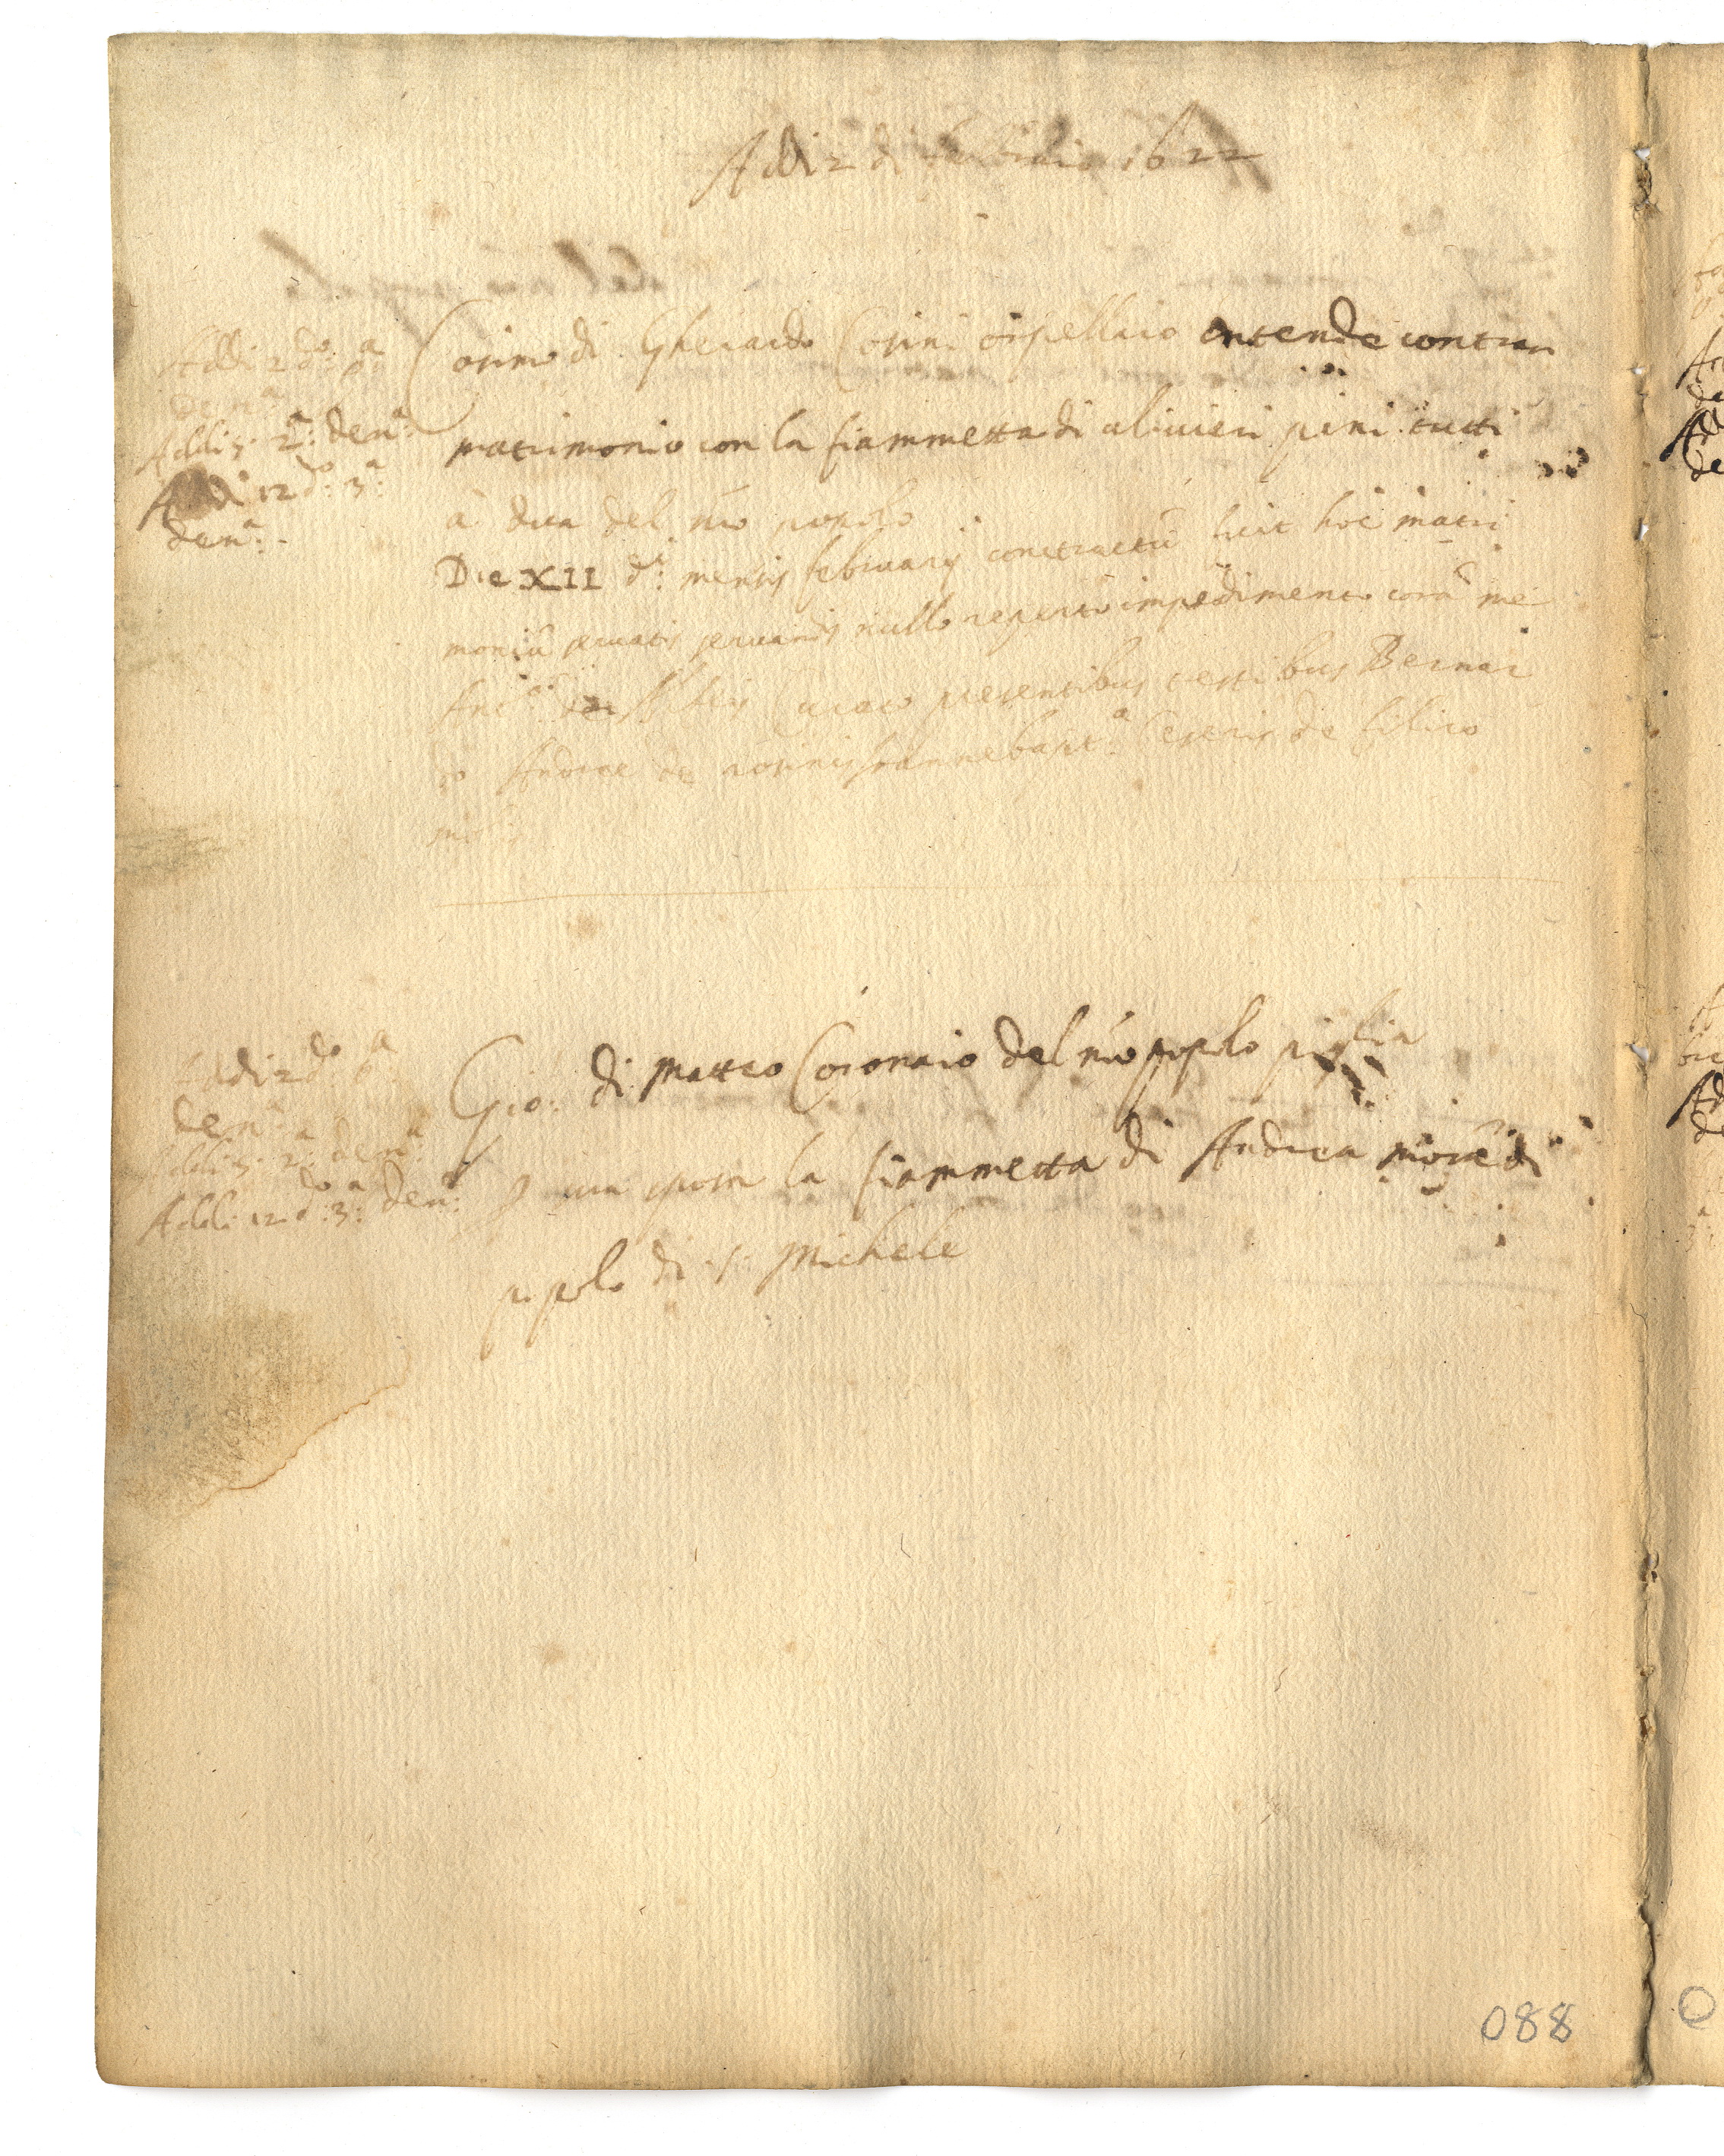 Addi 2 di febbraio 1622
Addi 2 do: pa
dena
Addi 5. 2a: dena
Addi 12 do: 3a:
dena:
Cosimo di Gherardo Cosini orpellaio entende contrar
matrimonio con la fiammetta di ulivieri pini tutti
a dua del nro popolo
Die XII di: mensis february contractū fuit hoc matri
moniū servatis servandis nullo reperto impedimento corā me
Curato presentibus testibus Bernar
do Andree de Ceseris de
Addi 2 do pa
dena
Addi 5. 2a: dena
Addi 12 do: 3a: dena:
Gio: di Matteo Coronaio del nro popolo piglia
p sua sposa la fiammetta di Andrea
popolo di S. Michele
088